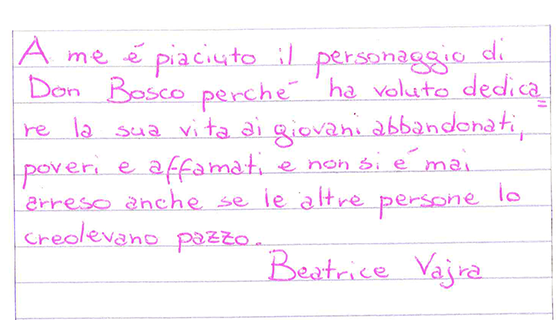 A me é piaciuto il personaggio di
Don Bosco perché ha voluto dedica=
re la sua vita ai giovani abbandonati,
poveri e affamati e non si é mai
arreso anche se le altre persone lo
credevano pazzo.
Beatrice Vajra